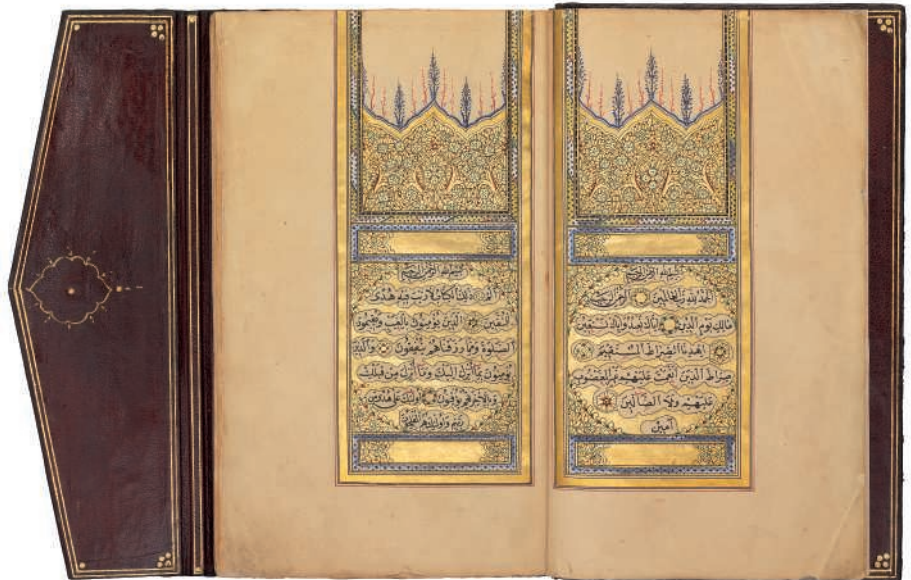 بسم الله الرحمن الرحيم
الحمد لله رب العالمين الرحمن الرحيم
مالك يوم الدين اياك نعبد واياك نستعين
اهدنا الصراط المستقيم
صراط الذين انعمت عليهم غير المغضوب
عليهم ولا الضالين
آمين
بسم الله الرحمن الرحيم
الم ذلك الكتاب لا ريب فيه هدى
للمتقين الذين يؤمنون بالغيب ويقيمون
الصلوة ومما رزقناهم ينفقون والذين
يؤمنون بما أنزل اليك وما أنزل من قبلك
وبالاخرة هم يوقنون اولئك على هدى من
ربهم واولئك هم المفلحون